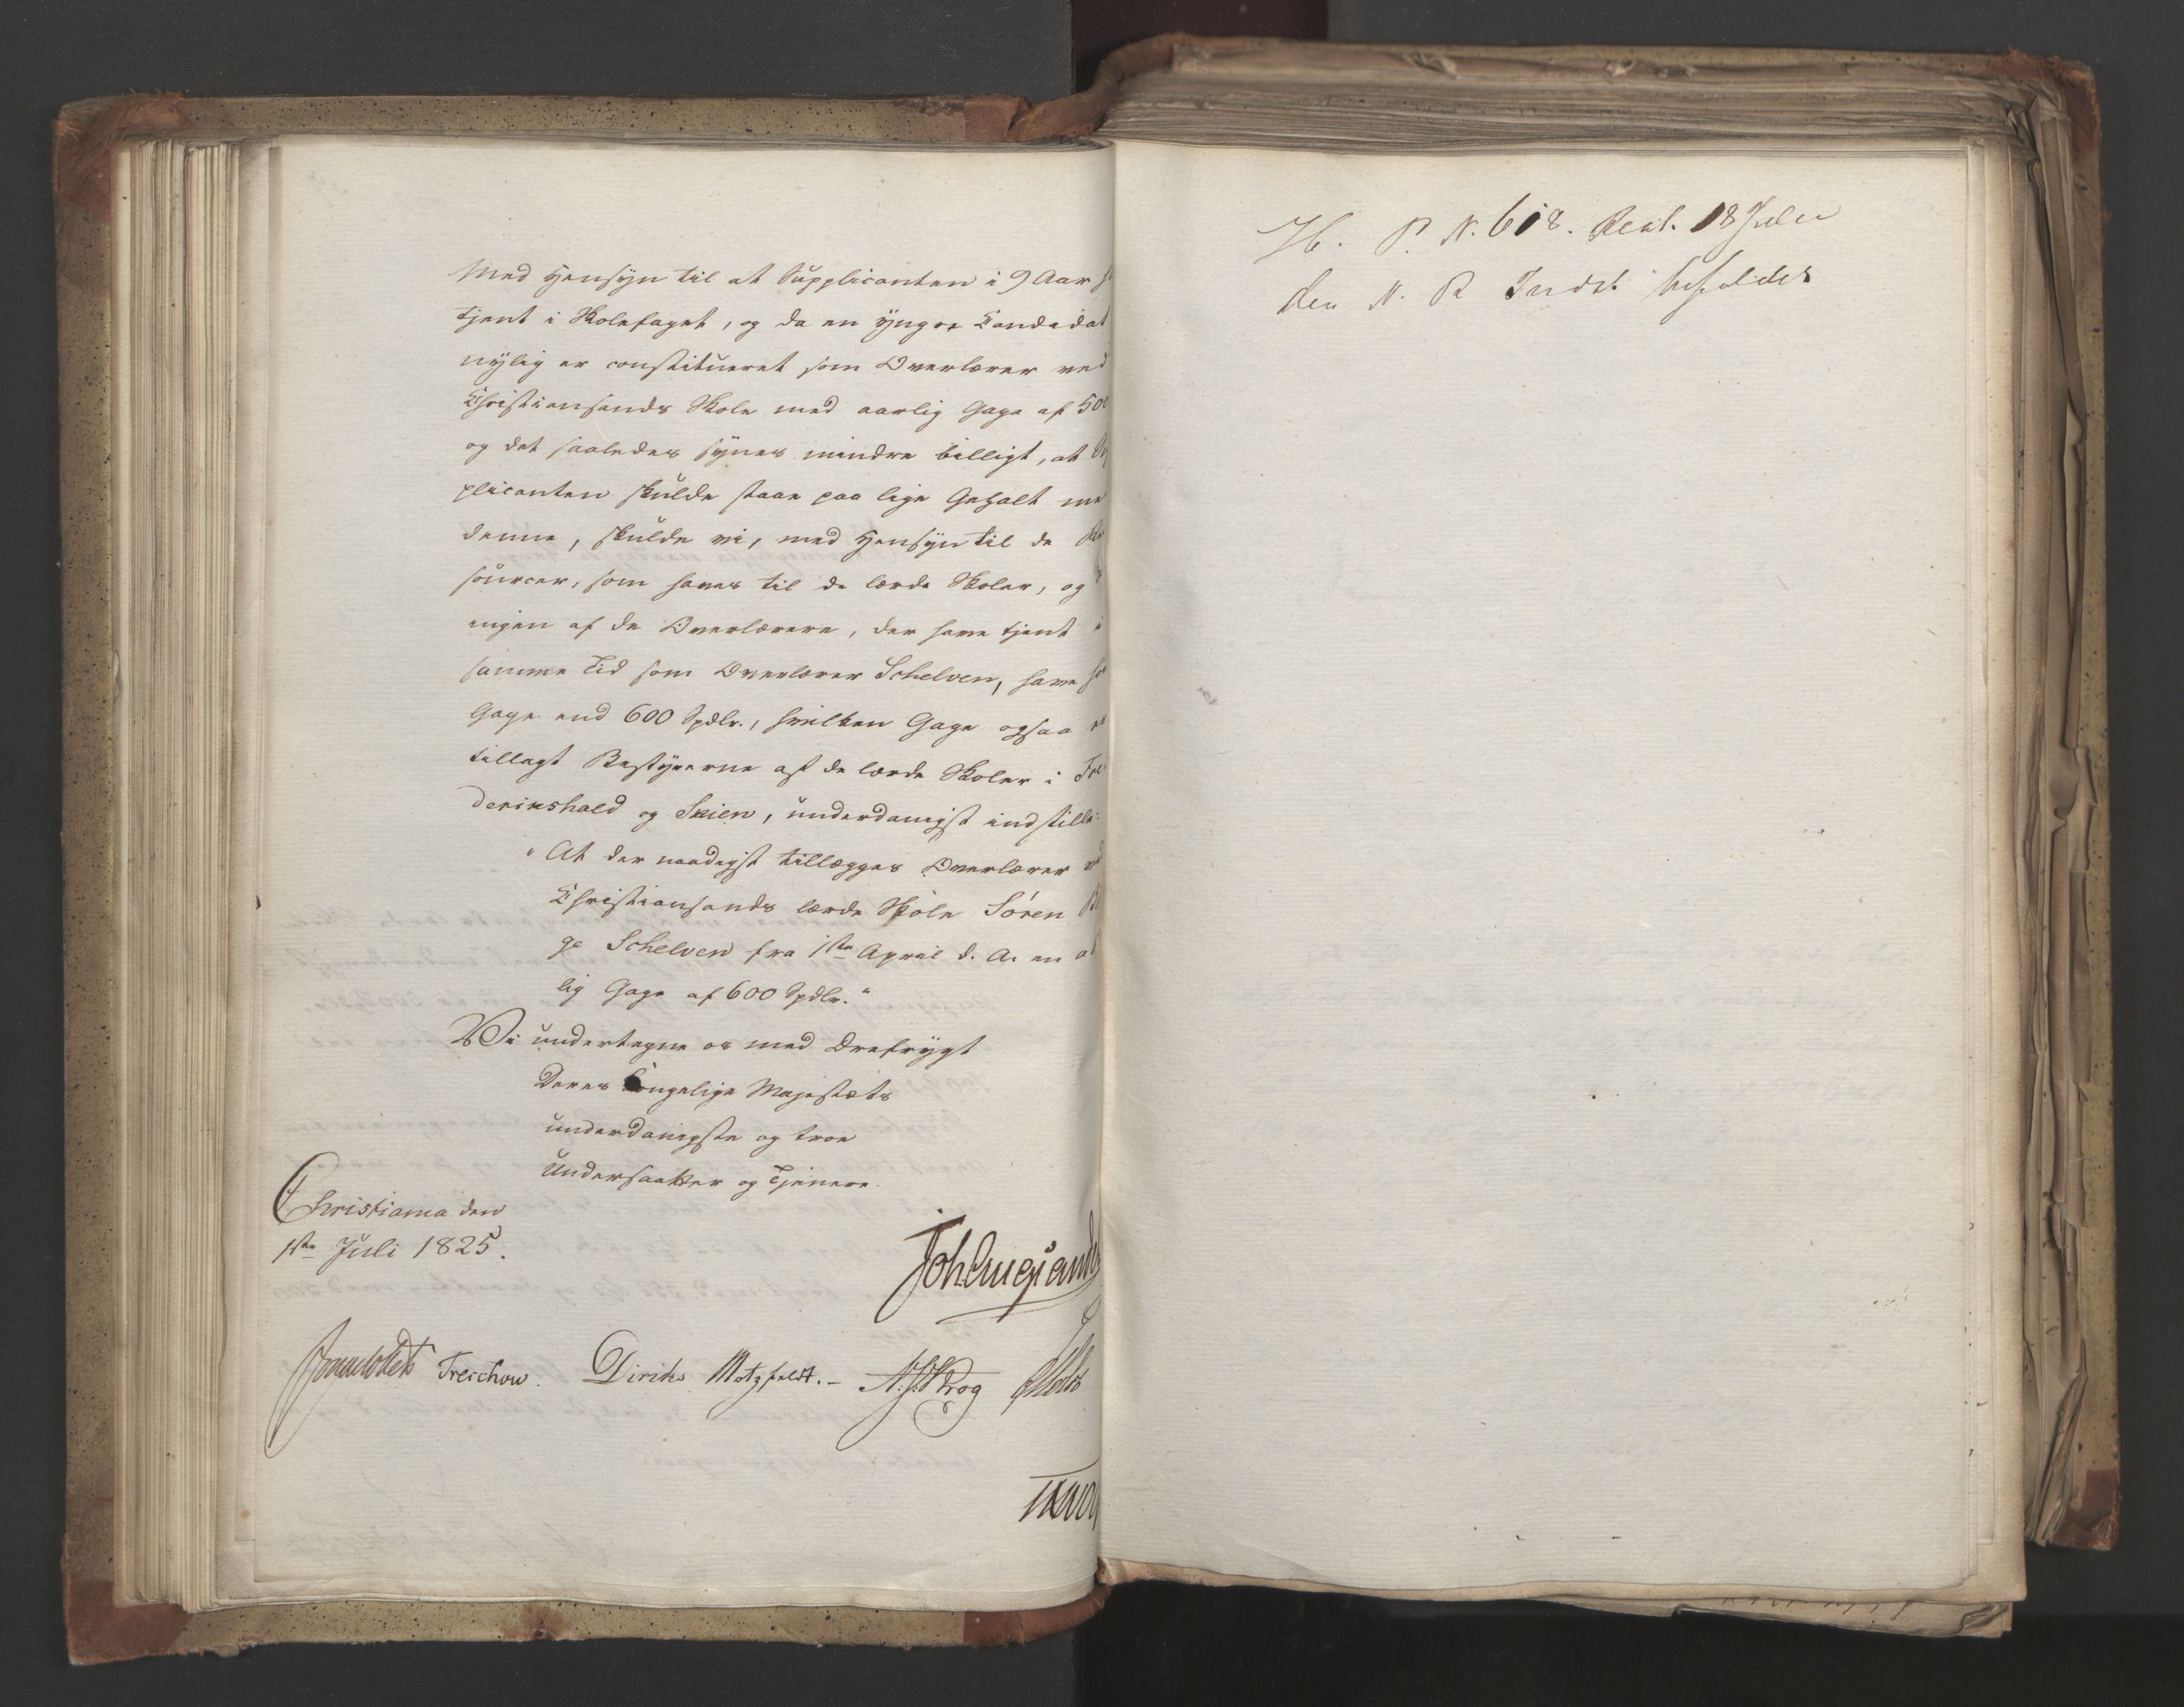 Med Hensyn til at Supplicanten i 9 Aar
tjent i Skolefaget, og da en yngre Candidat
nylig er constitueret som Overlærer ved
Christiansands Skole med aarlig Gage af 500
og det saaledes synes mindre billigt, at
plicanten skulde staae paa lige Gehalt med
denne, skulde vi, med Hensyn til de Re
sourcer, som haves til de lærde Skoler, og
ingen af de Overlærere, der have tjent i
samme Tid som Overlærer Schelven, have
Gage end 600 Spdlr., hvilken Gage ogsaa er
tillagt Bestyrerne af de lærde Skoler i Fre
derikshald og Skien, underdanigst indstille:
"At der naadigst tillægges Overlærer ved
Christiansands lærde Skole Sören
ge Schelven fra 1ste April d. A. en
lig Gage af 600 Spdlr."
Vi undertegne os med Ærefrygt
Deres Kongelige Majestæts
underdanigste og troe
Undersaatter og Tjenere.
Christiania den
1ste Juli 1825.
Treschow. Diriks Motzfeldt.- Krog
P. N. 618. Resl. 18 Julii
den N. R. Indst. bifaldes